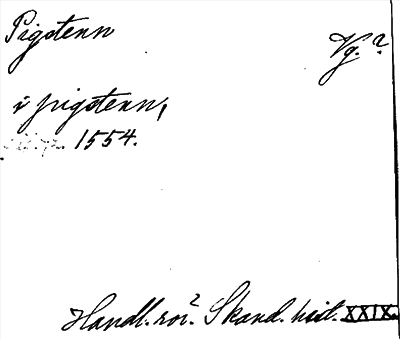 Pigstenn
Vg.?
i pigstenn,
1554.
Handl. rör? Skand. hist. XXIX.